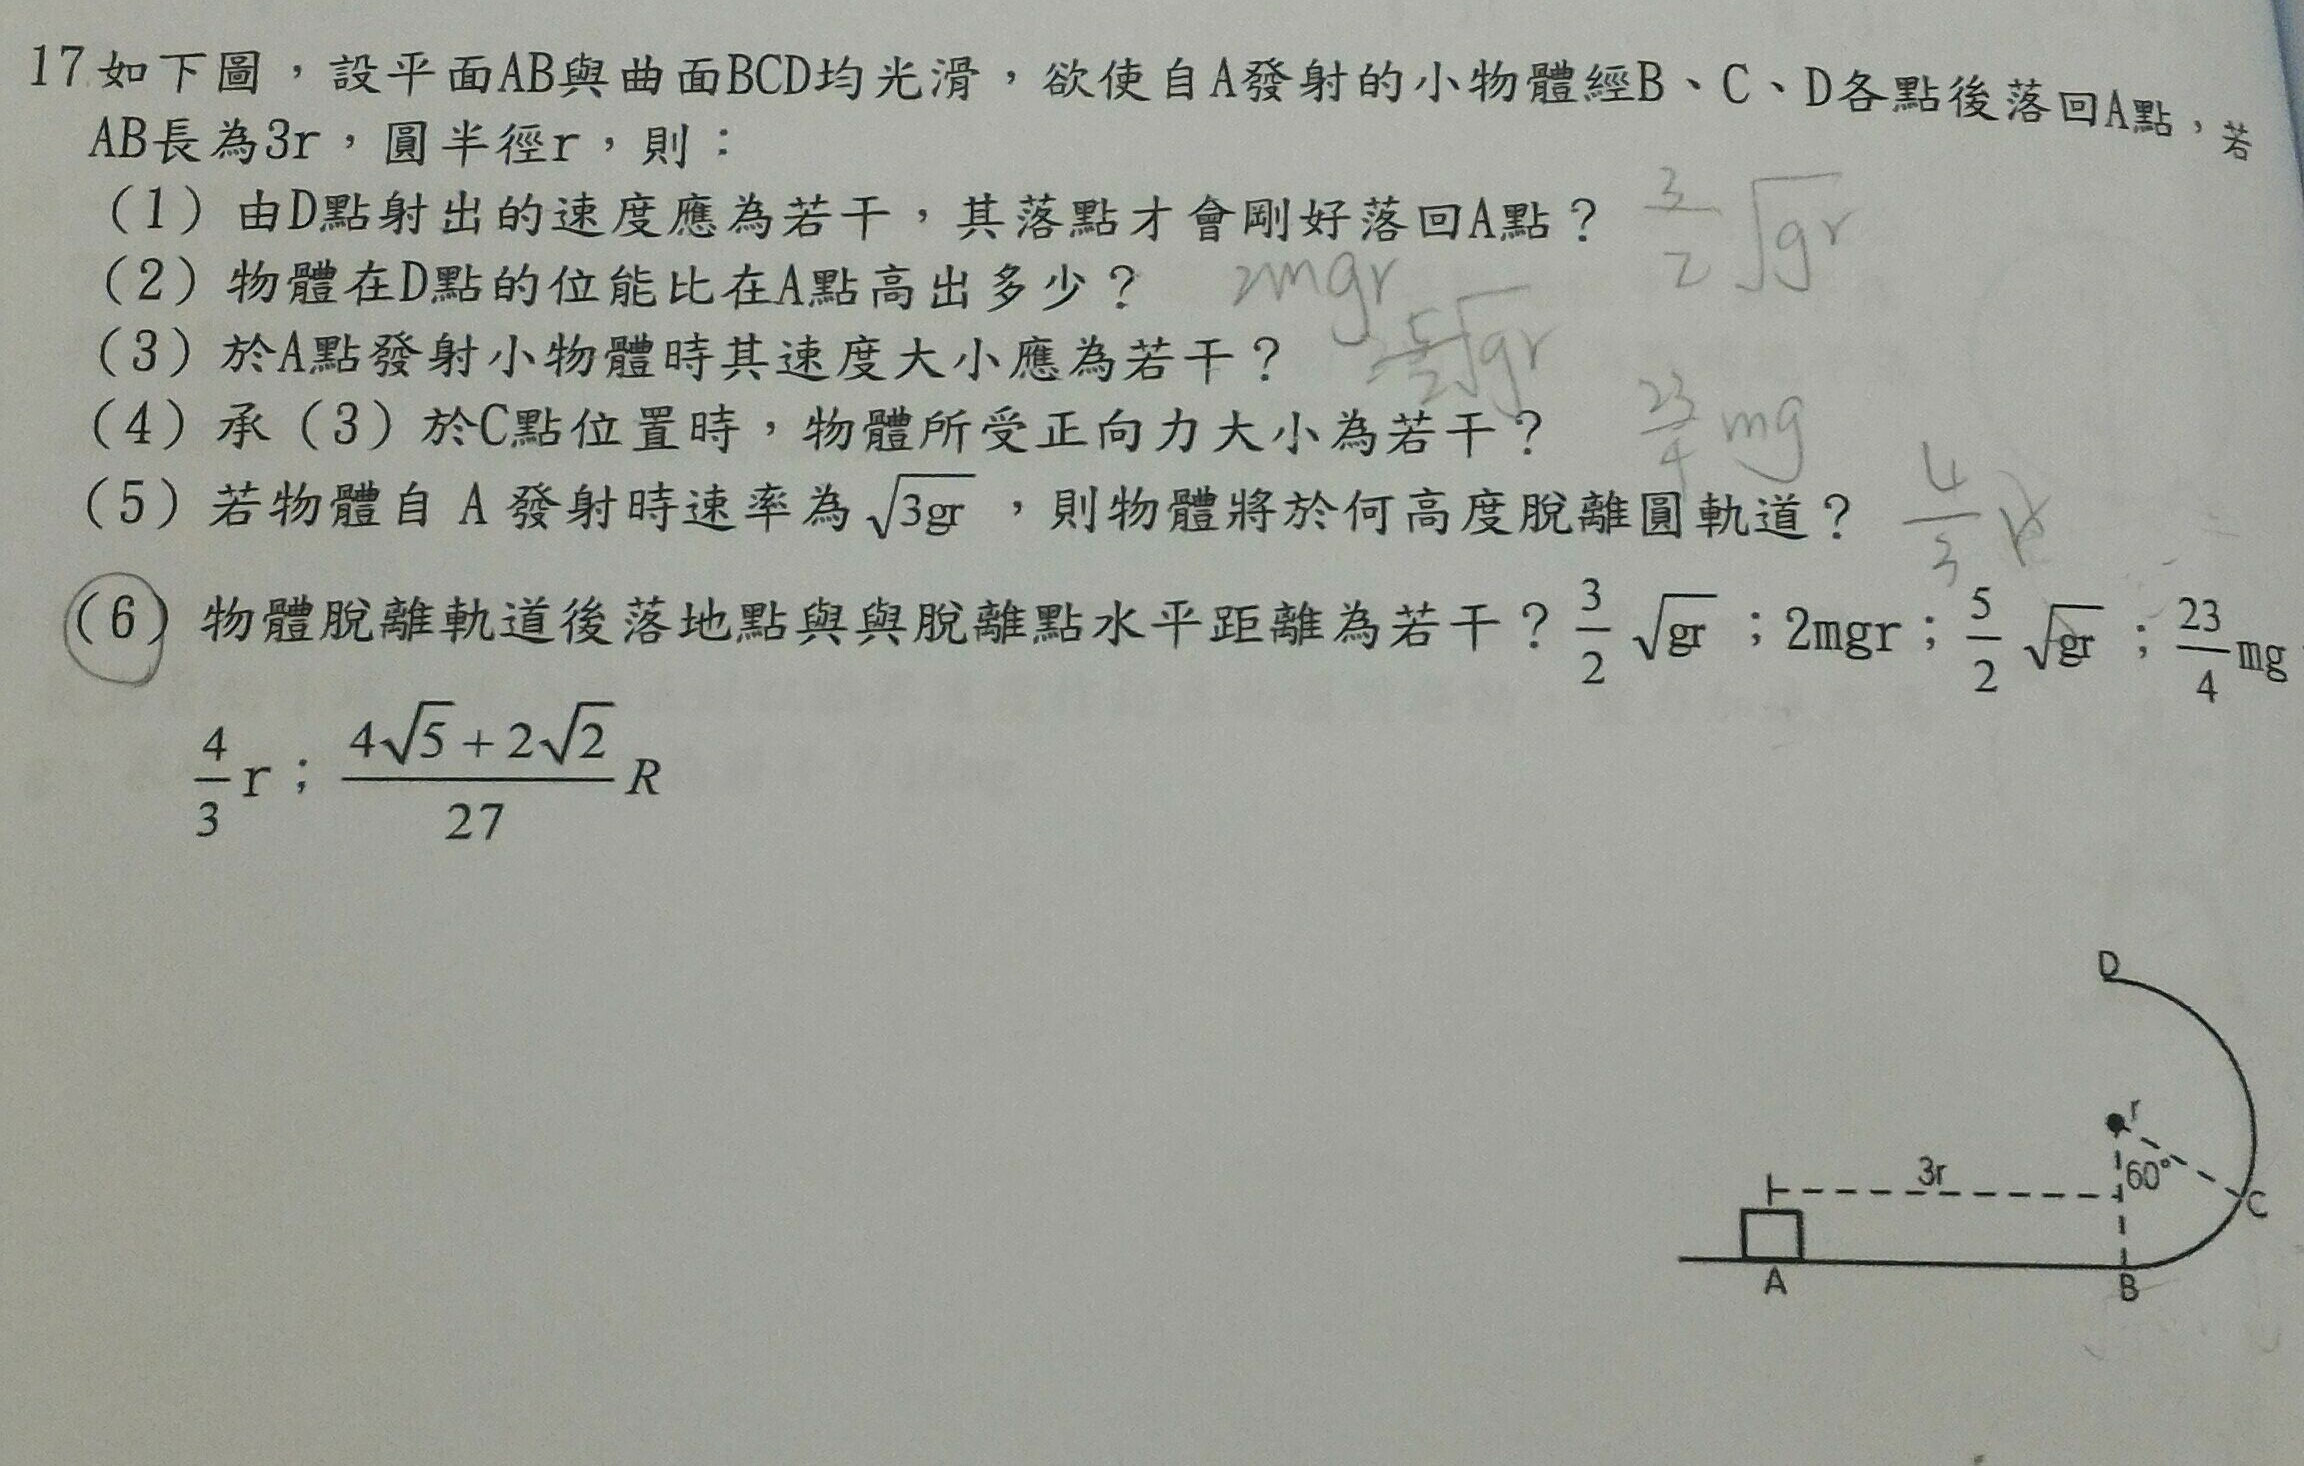 17.如下圖，設平面AB與曲面BCD均光滑，欲使自A發射的小物體經B、C、D各點後落回A點，若
AB長為3r，圓半徑r，則：
（1）由D點射出的速度應為若干，其落點才會剛好落回A點？ 3/2 √gr
（2）物體在D點的位能比在A點高出多少？ 2mgr
（3）於A點發射小物體時其速度大小應為若干？ 5/2 √gr
（4）承（3）於C點位置時，物體所受正向力大小為若干？ 23/4 mg
（5）若物體自 A 發射時速率為 √3gr ，則物體將於何高度脫離圓軌道？ 4/3 r
（6）物體脫離軌道後落地點與與脫離點水平距離為若干？ 3/2 √gr ；2mgr； 5/2 √gr ； 23/4 mg
4/3 r； (4√5+2√2)/27 R
D
r
60°
3r
C
A
B